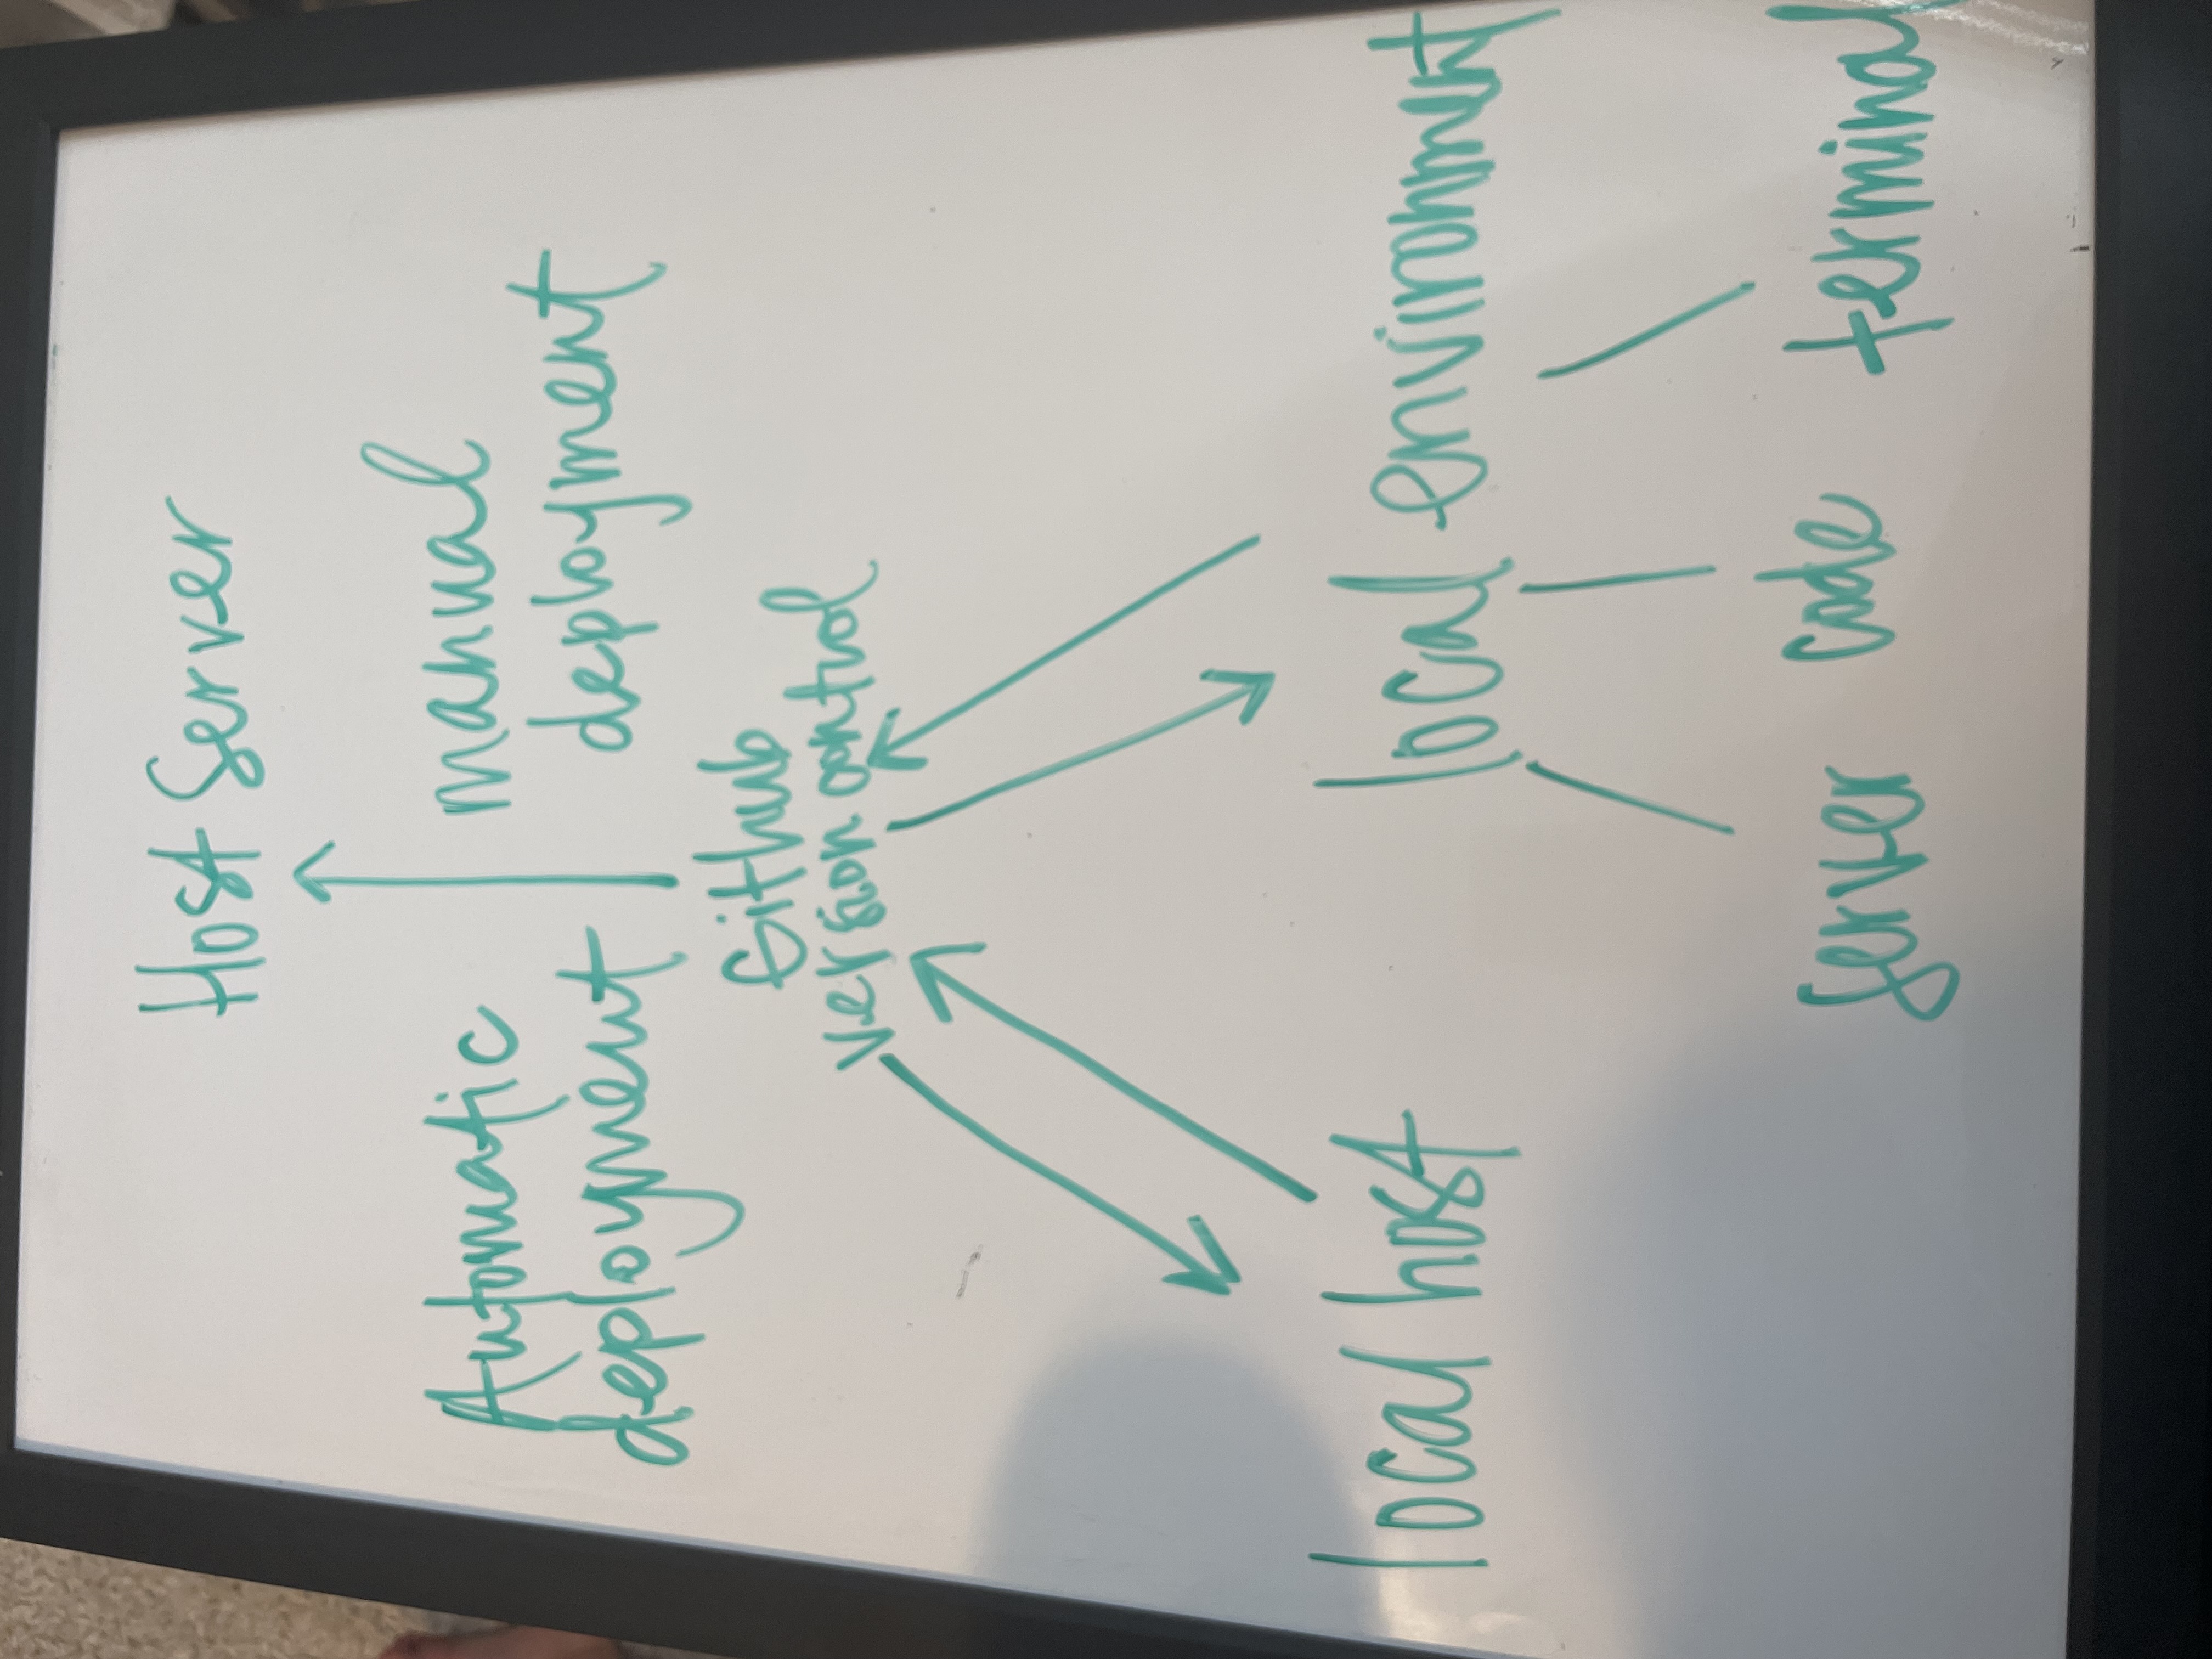 Host Server
Automatic
deployment
manual
deployment
Github
version control
local host
local environment
server code terminal